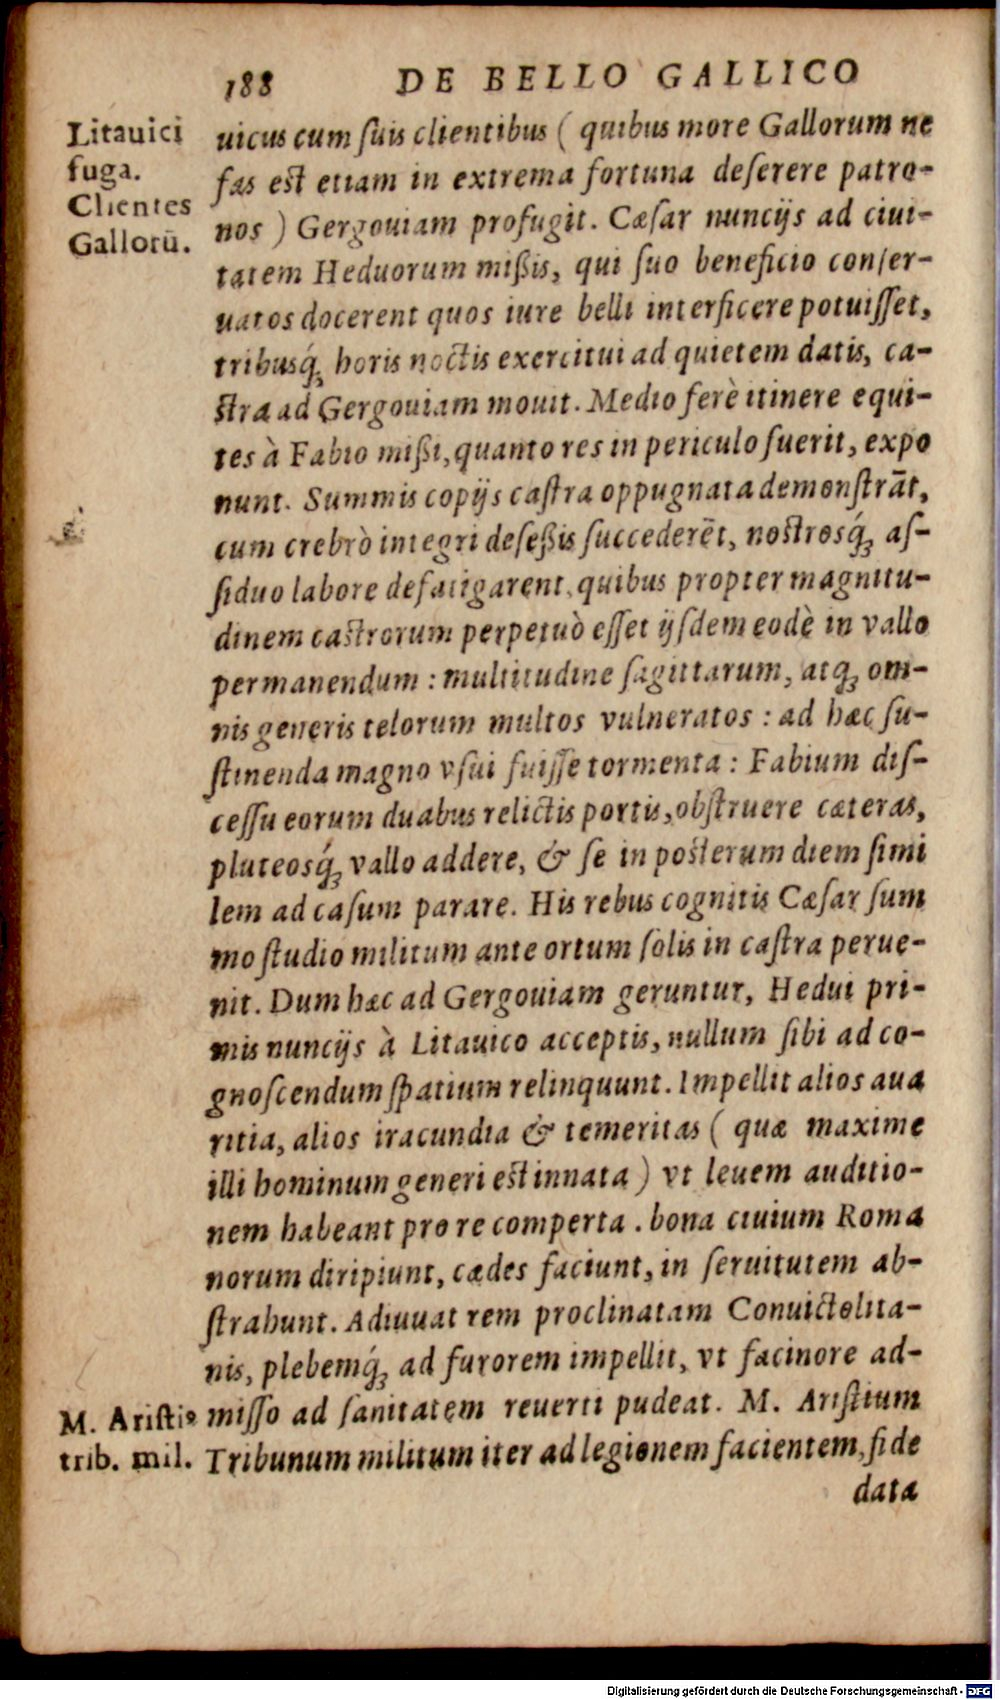 188 DE BELLO GALLICO
Litauici
fuga.
Clientes
Gallorū.
uicus cum ſuis clientibus ( quibus more Gallorum ne
fas est etiam in extrema fortuna deſerere patro-
nos ) Gergouiam profugit. Cæſar nuncijs ad ciui-
tatem Heduorum mißis, qui ſuo beneficio conſer-
uatos docerent quos iure belli interficere potuiſſet,
tribusq́ꝫ horis noctis exercitui ad quietem datis, ca-
ſtra ad Gergouiam mouit. Medio ferè itinere equi-
tes à Fabio mißi, quanto res in periculo fuerit, expo
nunt. Summis copijs caſtra oppugnata demonſtrāt,
cum crebrò integri defeßis ſuccederēt, nostrosq́ꝫ aſ-
ſiduo labore defatigarent, quibus propter magnitu-
dinem castrorum perpetuò eſſet ijſdem eodè in vallo
permanendum : multitudine ſagittarum, atqꝫ om-
nis generis telorum multos vulneratos : ad hæc ſu-
ſtinenda magno vſui fuiſſe tormenta : Fabium diſ-
ceſſu eorum duabus relictis portis, obſtruere cæteras,
pluteosq́ꝫ vallo addere, & ſe in posterum diem ſimi
lem ad caſum parare. His rebus cognitis Cæſar ſum
mo ſtudio militum ante ortum ſolis in caſtra perue-
nit. Dum hæc ad Gergouiam geruntur, Hedui pri-
mis nuncijs à Litauico acceptis, nullum ſibi ad co-
gnoſcendum ſpatium relinquunt. Impellit alios aua
ritia, alios iracundia & temeritas ( quæ maxime
illi hominum generi est innata ) vt leuem auditio-
nem habeant pro re comperta . bona ciuium Roma
norum diripiunt, cædes faciunt, in ſeruitutem ab-
ſtrahunt. Adiuuat rem proclinatam Conuictolita-
nis, plebemq́ꝫ ad furorem impellit, vt facinore ad-
miſſo ad ſanitatem reuerti pudeat. M. Ariſtium
Tribunum militum iter ad legionem facientem, fide
M. Aristiꝰ
trib. mil.
data
Digitalisierung gefördert durch die Deutsche Forschungsgemeinschaft - DFG